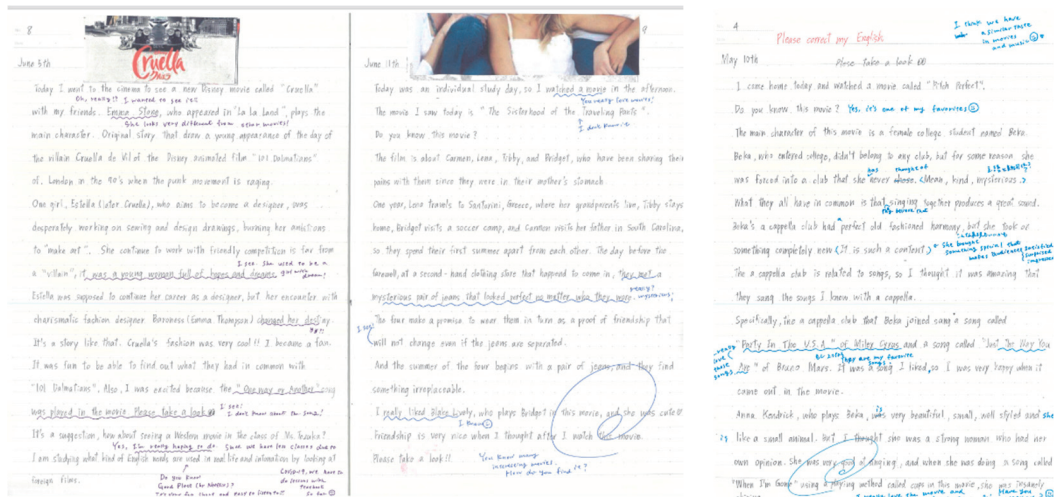 8
Cruella
June 5th
Today I went to the cinema to see a new Disney movie called "Cruella"
Oh, really!! I wanted to see it!!
with my friends. Emma Stone, who appeared in "La La Land", plays the
She looks very different from other movies!
main character. Original story that drew a young appearance of the day of
the villain Cruella de Vil of the Disney animated film "101 Dalmatians"
at. London in the 70's when the punk movement is raging.
One girl, Estella (later Cruella), who aims to become a designer, was
desperately working on sewing and design drawings, burning her ambitions
to "make art". She continue to work with friendly competition is far from
I see. She used to be a
a "villain", it was a young woman full of hopes and dreams.
girl with dream!
Estella was supposed to continue her career as a designer, but her encounter with
charismatic fashion designer Baroness (Emma Thompson) changed her destiny.
It's a story like that. Cruella's fashion was very cool!! I became a fan.
It was fun to be able to find out what they had in common with
"101 Dalmatians". Also, I was excited because the "One way or Another" song
was played in the movie. Please take a look
I see!
I don't know about the song!
It's a suggestion, how about seeing a Western movie in the class of Ms.
Yes, I'm really hoping to do.
I am studying what kind of English words are used in real life and intonation by looking at
foreign films.
Do you know
Good Place (by Netflix)?
9
June 11th
Today was an individual study day, so I watched a movie in the afternoon.
You really love movies!
The movie I saw today is "The Sisterhood of the Traveling Pants".
I don't know it
Do you know this movie?
The film is about Carmen, Lena, Tibby, and Bridget, who have been sharing their
pains with them since they were in their mother's stomach.
One year, Lena travels to Santorini, Greece, where her grandparents live, Tibby stays
home, Bridget visits a soccer camp, and Carmen visit her father in South Carolina,
so they spend their first summer apart from each other. The day before the
farewell, at a second-hand clothing store that happened to come in, they met a
really?
mysterious pair of jeans that looked perfect no matter who they wore.
mysterious!
I see!
The four make a promise to wear them in turn as a proof of friendship that
will not change even if the jeans are separated.
And the summer of the four begins with a pair of jeans, and they find
something irreplaceable.
I really liked Blake Lively, who plays Bridget in this movie, and she was cute!!
I know
Friendship is very nice when I thought after I watch this movie.
Please take a look!!
You know many
interesting movies.
How do you find it?
4
Please correct my English
I think we have
a similar taste
in movies
and music
May 10th
Please take a look
I come home today and watched a movie called "Pitch Perfect".
Do you know this movie? Yes, it's one of my favorites
The main character of this movie is a female college student named Beka.
Beka, who entered college, didn't belong to any club, but for some reason she
has thought of
was forced into a club that she never chose. (Mean, kind, mysterious.)
What they all have in common is that singing together produces a great sound.
Beka's a cappella club had perfect old fashioned harmony, but she took or
something completely new (It is such a content) she brought
something special that
The a cappella club is related to songs, so I thought it was amazing that
they sang the songs I know with a cappella.
Specifically, the a cappella club that Beka joined sang a song called
"Party In The U.S.A" of Miley Cyrus and a song called "Just The Way You
really love these songs
are my favorite songs!
Are" of Bruno Mars. It was a song I liked, so I was very happy when it
came out in the movie.
Anna Kendrick, who plays Beka, is was very beautiful, small, well styled and she
is like a small animal. But I thought she was a strong woman who had her
own opinion. She was very good at singing, and when she was doing a song called
"When I'm Gone" using a playing method called cups in this movie, she was insanely